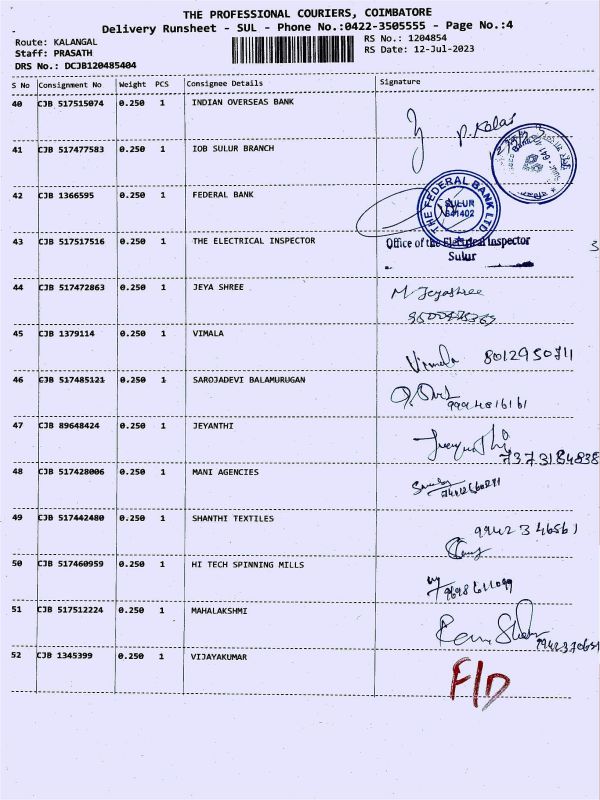 THE PROFESSIONAL COURIERS, COIMBATORE
Delivery Runsheet - SUL - Phone No.:0422-3505555 - Page No.:4
Route: KALANGAL
RS No.: 1204854
Staff: PRASATH
RS Date: 12-Jul-2023
DRS No.: DCJB120485404
S No Consignment No Weight PCS Consignee Details Signature
40 CJB 517515074 0.250 1 INDIAN OVERSEAS BANK
P. Kalai
41 CJB 517477583 0.250 1 IOB SULUR BRANCH
42 CJB 1366595 0.250 1 FEDERAL BANK
THE FEDERAL BANK LTD.
SULUR
641402
43 CJB 517517516 0.250 1 THE ELECTRICAL INSPECTOR
Office of the Electrical Inspector
Sulur
3
44 CJB 517472863 0.250 1 JEYA SHREE
M. Jeyashree
45 CJB 1379114 0.250 1 VIMALA
Vimala 8012950711
46 CJB 517485121 0.250 1 SAROJADEVI BALAMURUGAN
9994816161
47 CJB 89648424 0.250 1 JEYANTHI
7373184838
48 CJB 517428006 0.250 1 MANI AGENCIES
49 CJB 517442480 0.250 1 SHANTHI TEXTILES
9942346561
50 CJB 517460959 0.250 1 HI TECH SPINNING MILLS
9698611099
51 CJB 517512224 0.250 1 MAHALAKSHMI
52 CJB 1345399 0.250 1 VIJAYAKUMAR
F/D